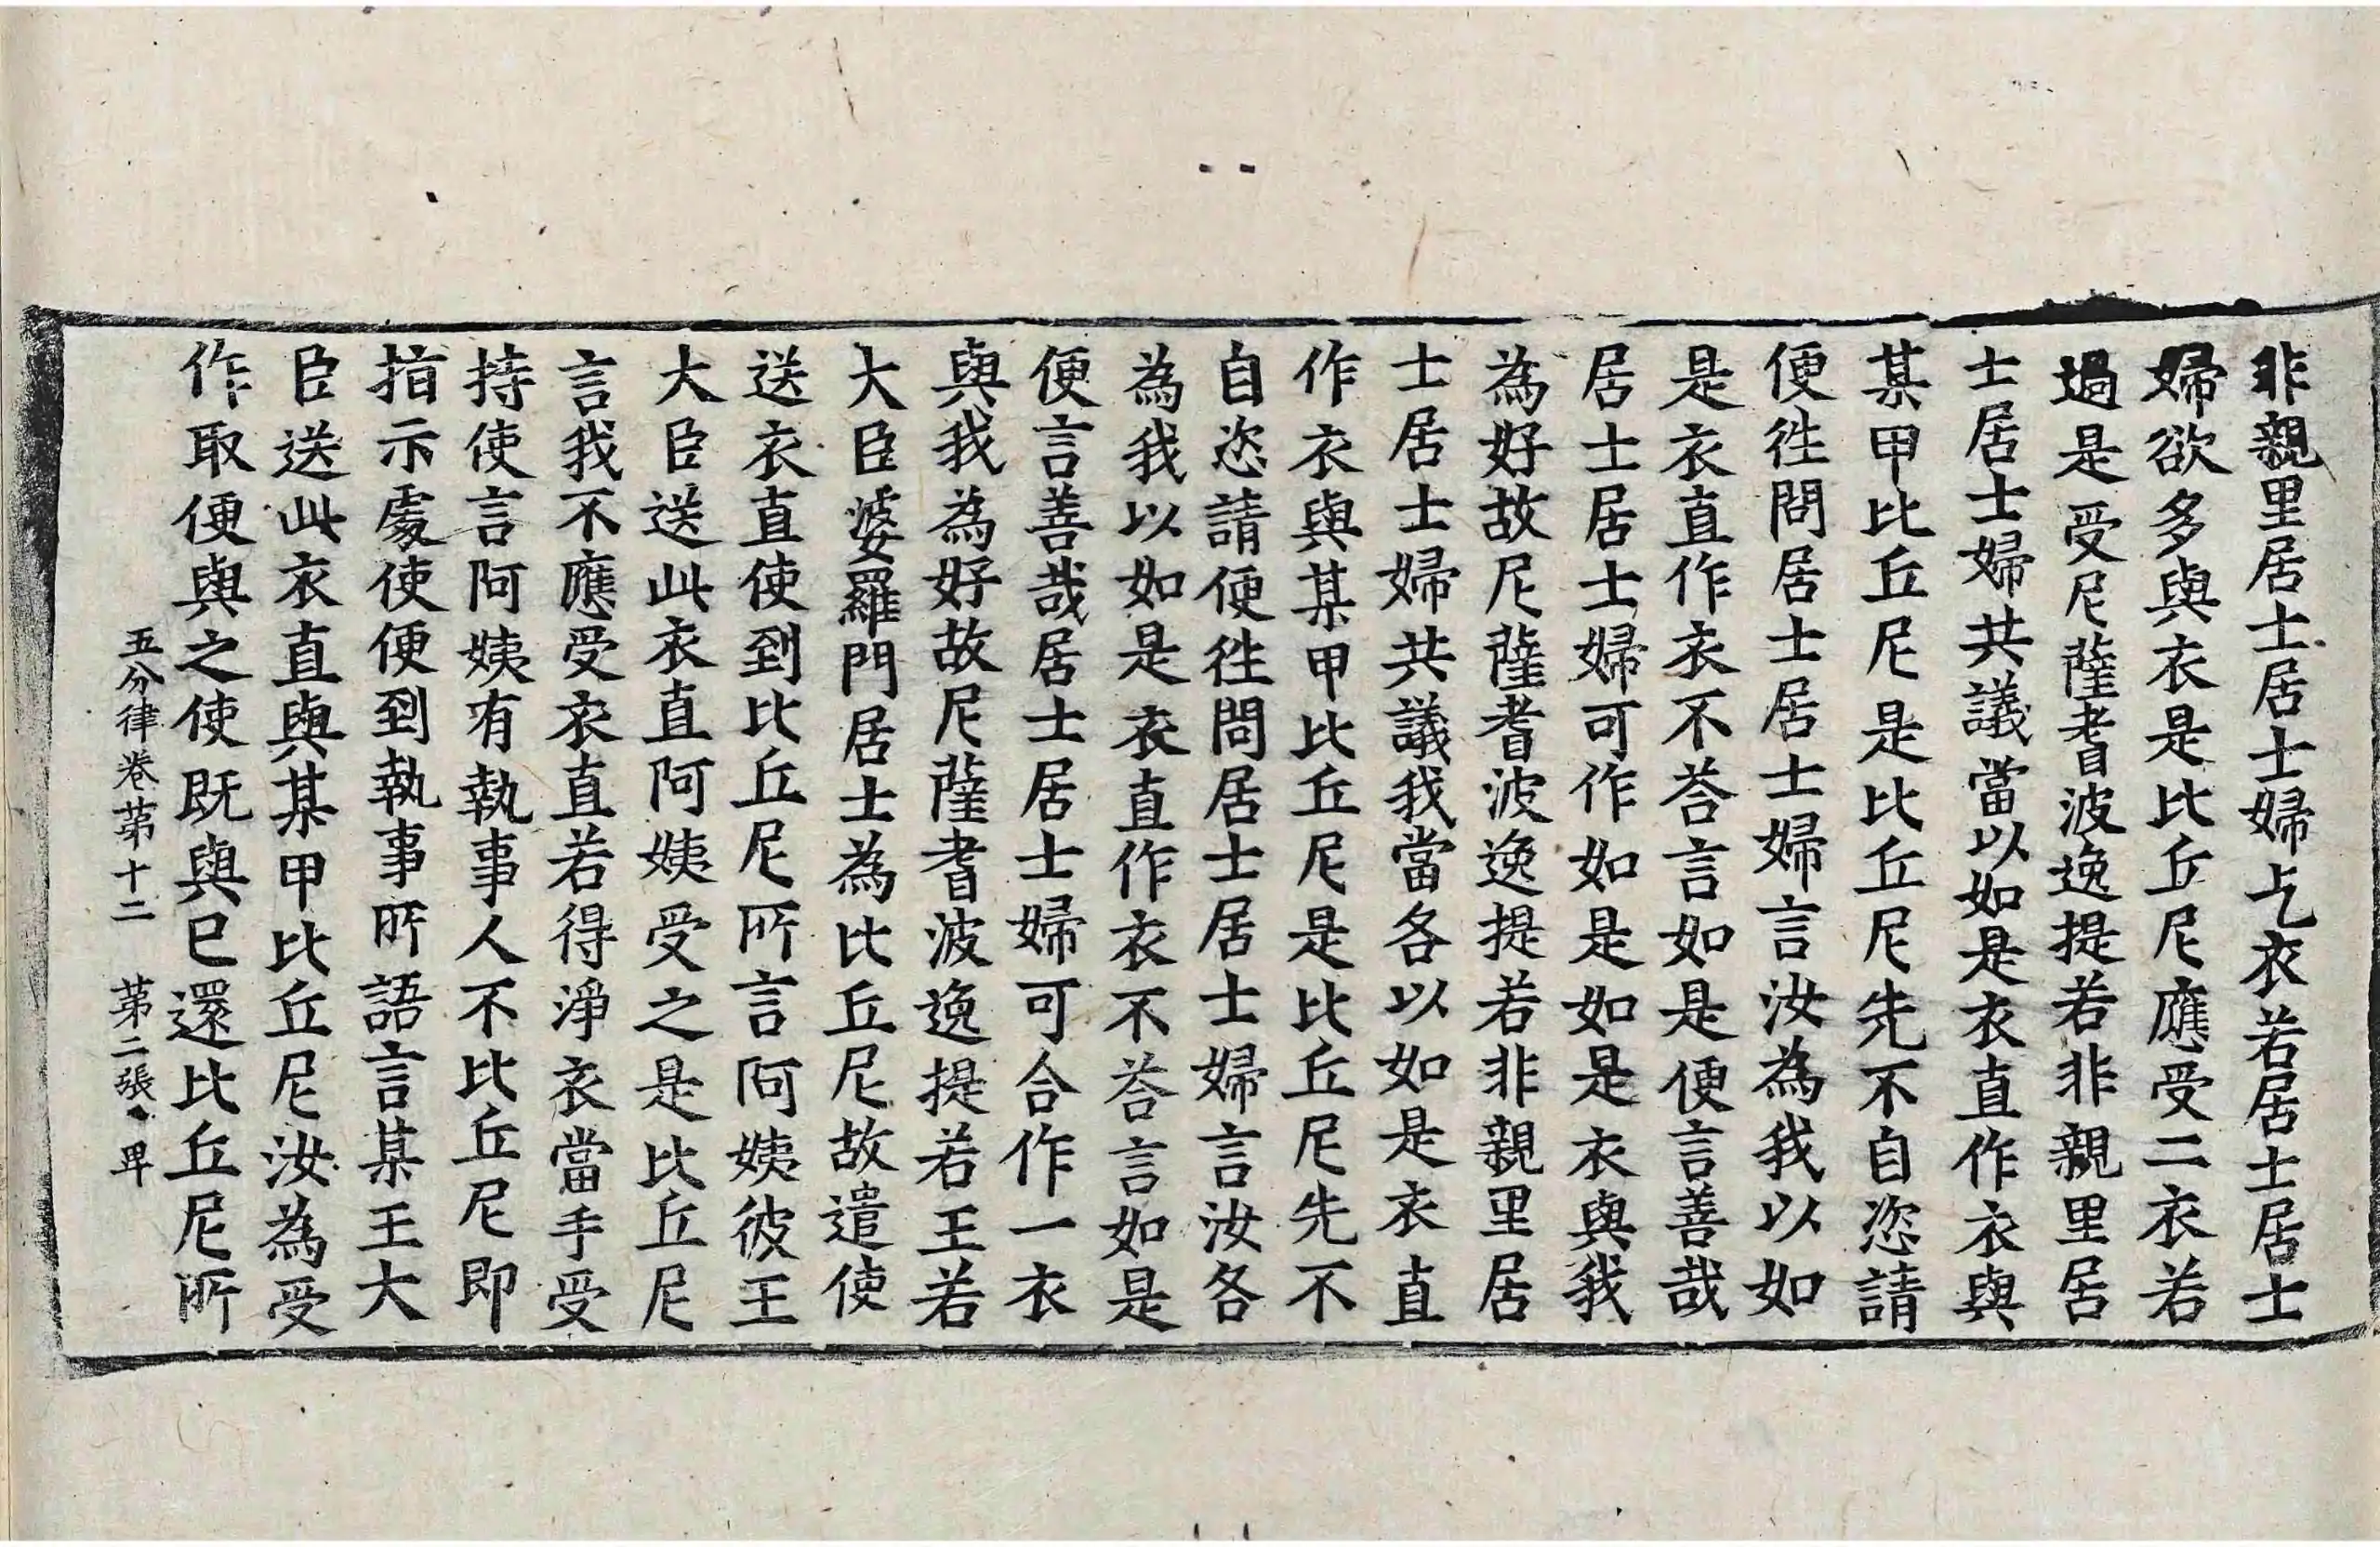 非親里居士居士婦乞衣若居士居士
婦欲多與衣是比丘尼應受二衣若
過是受尼薩耆波逸提若非親里居
士居士婦共議當以如是衣直作衣與
某甲比丘尼是比丘尼先不自恣請
便徃問居士居士婦言汝為我以如
是衣直作衣不荅言如是便言善哉
居士居士婦可作如是如是衣與我
為好故尼薩耆波逸提若非親里居
士居士婦共議我當各以如是衣直
作衣與某甲比丘尼是比丘尼先不
自恣請便徃問居士居士婦言汝各
為我以如是衣直作衣不荅言如是
便言善哉居士居士婦可合作一衣
與我為好故尼薩耆波逸提若王若
大臣婆羅門居士為比丘尼故遣使
送衣直使到比丘尼所言阿姨彼王
大臣送此衣直阿姨受之是比丘尼
言我不應受衣直若得淨衣當手受
持使言阿姨有執事人不比丘尼即
指示處使便到執事所語言某王大
臣送此衣直與某甲比丘尼汝為受
作取便與之使既與已還比丘尼所
五分律卷苐十二 苐二張 卑